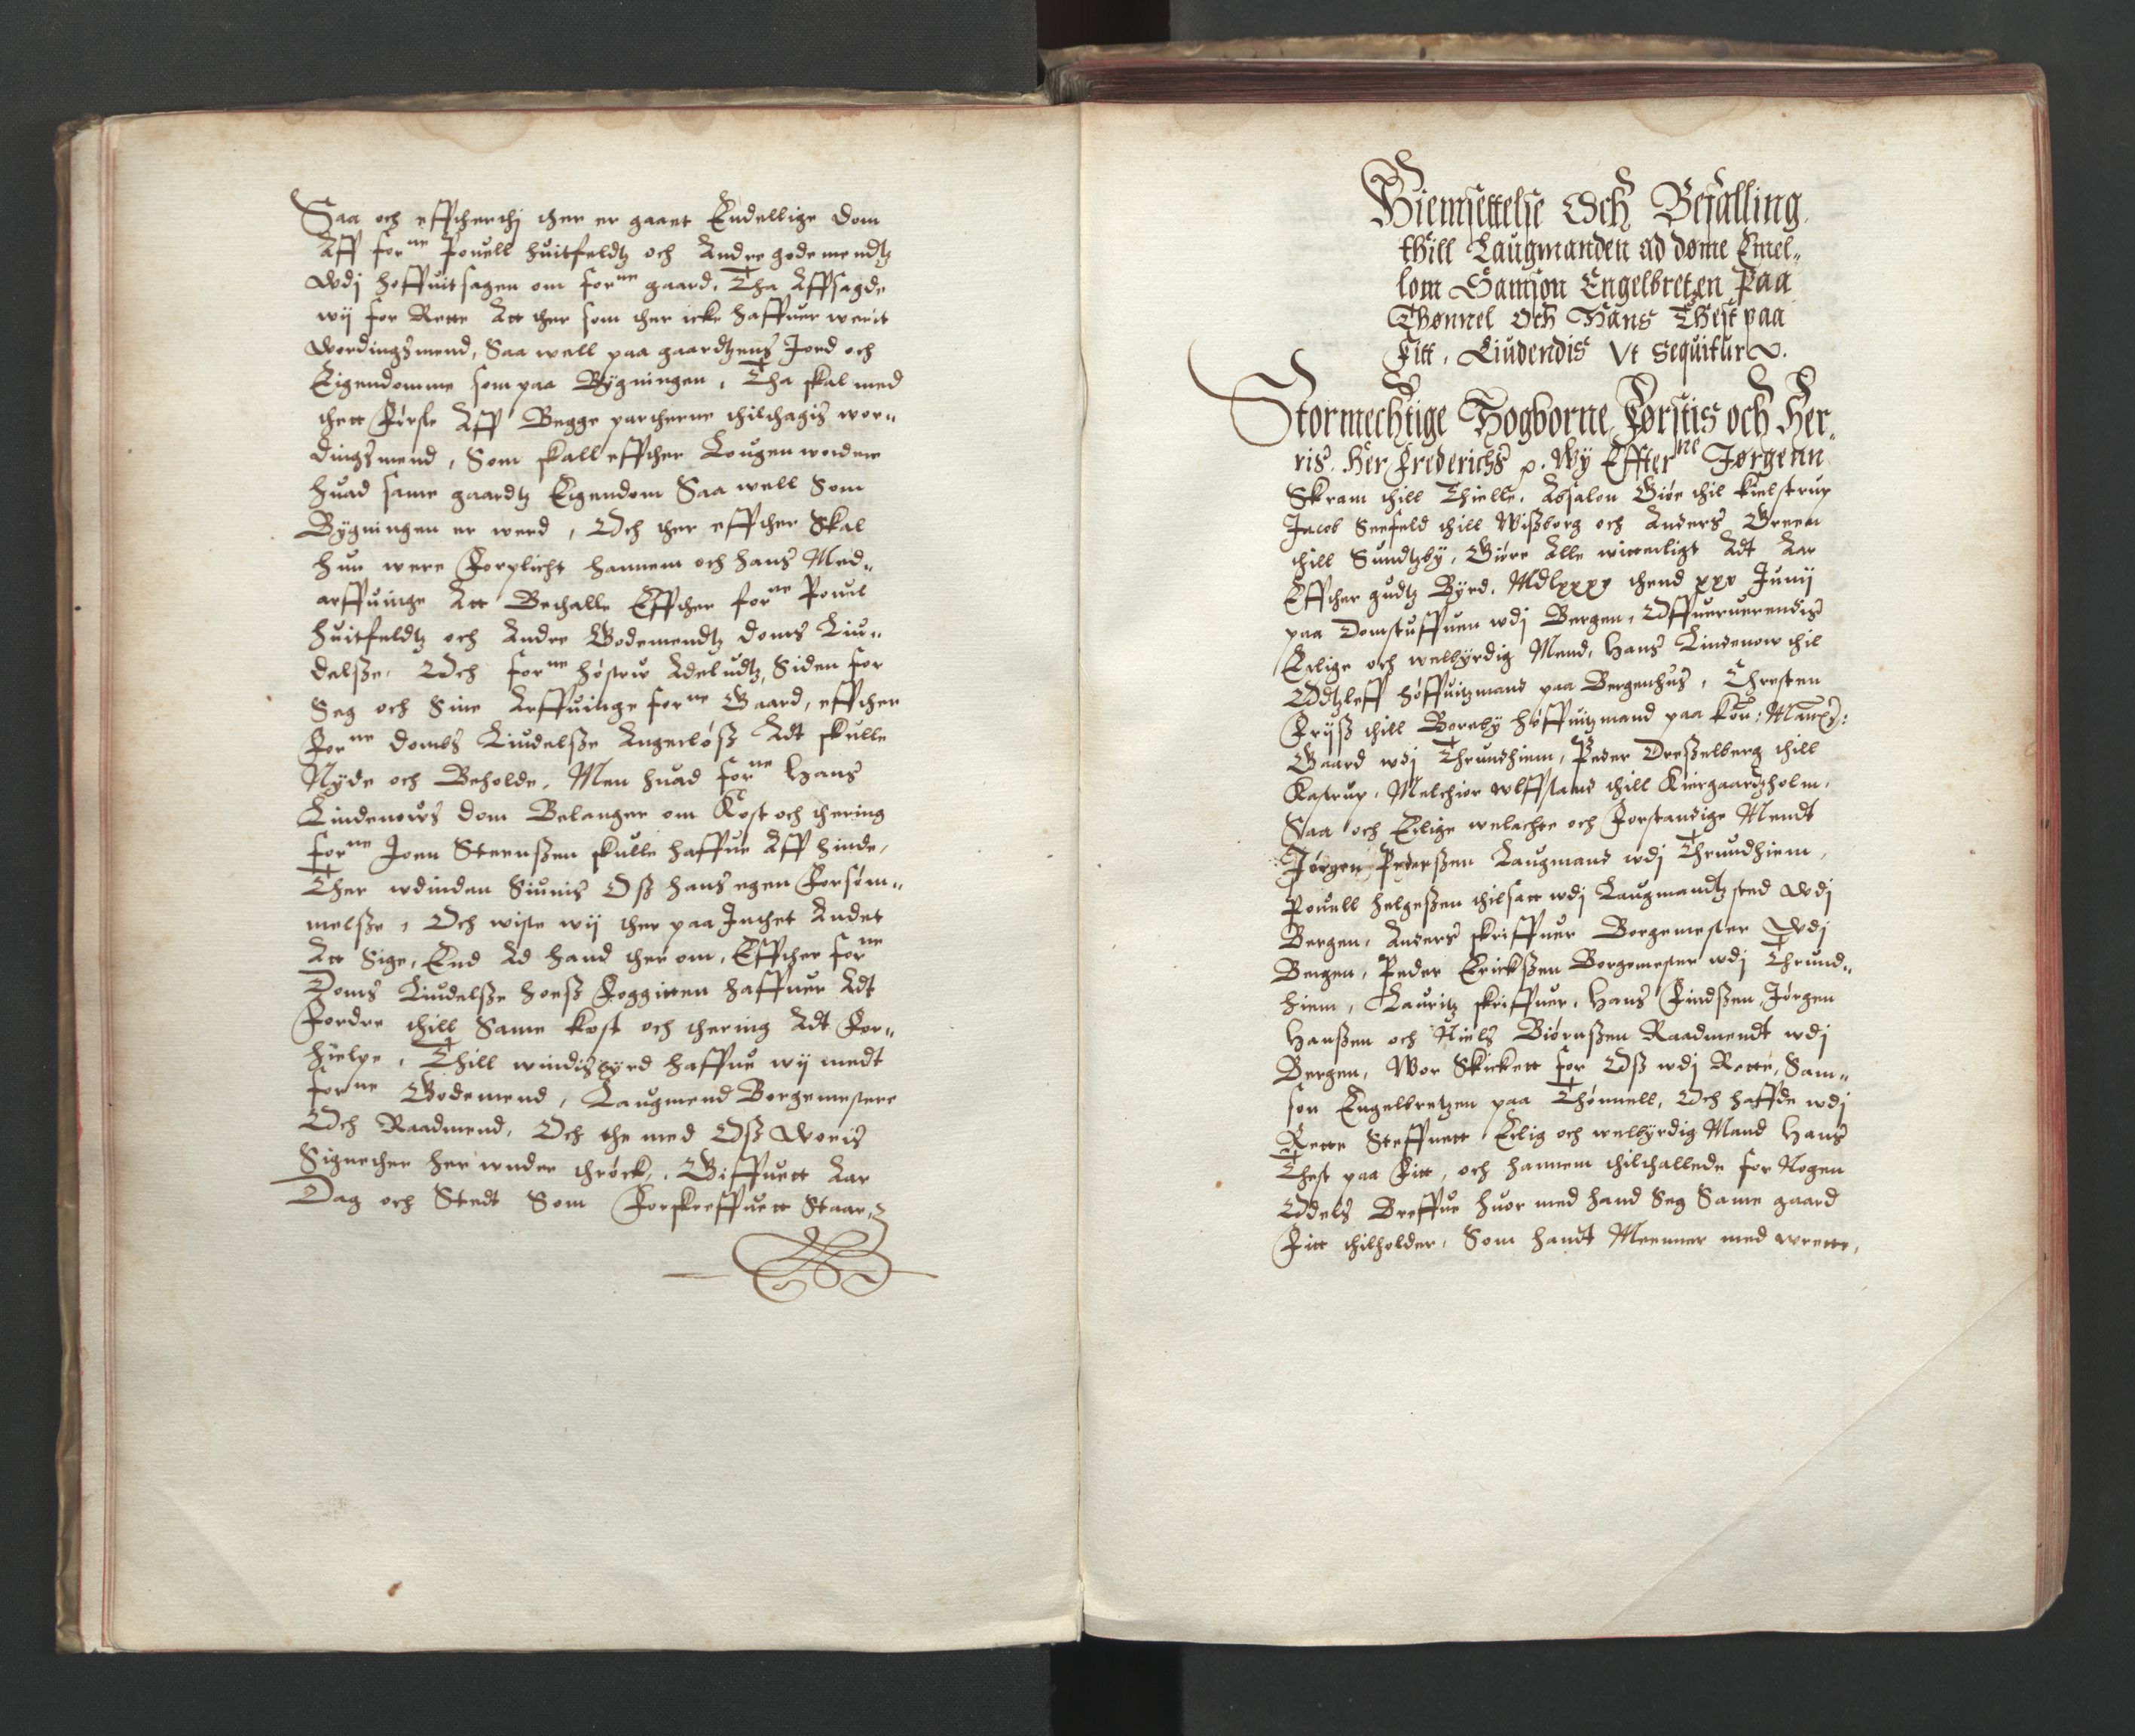 Saa och effther thj ther er gaaet Endellige dom
Aff forne Pouell huitfeldtz och Andre gode mendtz
wdj hoffuitsagen om forne gaard, Tha Affsagde
wij for Rette Att ther som ther icke haffuer werit
wordingsmend, Saa well paa gaardtzens Jord och
Eigendomme som paa Bygningen, Tha skal med
thett Første Aff Begge partherne thilthagis wor„
dingsmend, Som skall effther Lougen wordere
huad same gaardtz Eigendom Saa well Som
Bygningen er werd, Och ther effther Skal
hun were Forplicht hannem och hans Med„
arffuinge Att Bethalle Effther forne Pouil
huitfeldtz och Andre Godemendtz doms Liu„
delsze, Och forne høstru Adeludtz, Siden for
Seg och Sine Arffuinge forne Gaard, effther
Forne dombs Liudelsze Angerløsz Adt skulle
Nyde och Beholde, Men huad forne Hans
Lindenows dom Belanger om Kost och thering
forne Joen Steenszen skulle haffue Aff hinde,
Ther wdinden Siunis Osz hans egen Forsøm„
melsze, Och wiste wij ther paa Inthet Andet
Att Sige, End Ad hand ther om, Effther forne
Doms Liudelsze hoesz Foggitten haffuer Adt
Fordre thill Same kost och thering Adt For„
hielpe, Thill windisbyrd haffue wij medt
forne Godemend, Laugmend Borgemestere
Och Raadmend, Och the med Osz woris
Signether her wnder thrøck, Giffuett Aar
Dag och Stedt Som Forskreffuett Staar,
Hiemsettelse Och Befalling
thill Laugmanden ad døme Emel„
lom Samson Engelbretzen Paa
Thønnel Och Hans Thest paa
Fitt, Liudendis Vt sequitur.
Stormechtige Høgborne Førstis och Her„
ris, Her Frederichs p. Wy Effterne Jørgenn
Skram thill Thielle, Absalon Giøe thil kielstrup
Jacob Seefeld thill Wisborg och Anders Green
thill Sundtzby, Giøre Alle witterligt Adt Aar
Effther gudtz Byrd, Mdlxxx thend xxv Junij
paa Domstuffuen wdj Bergen, Offueruerendis
Erlige och welbyrdig Mend, Hans Lindenow thil
Odtzleff høffuitzmand paa Bergenhus, Thresten
Frysz thill Boreby høffuitzmand paa Kon: Maytz:
Gaard wdj Thrundhiem, Peder Dreszelberg thill
Kastrup, Melchior wlffstand thill Kiergaardzholm,
Saa och Erlige welachte och Forstandige Mendt
Jørgen Pederszen Laugmand wdj Thrundhiem,
Pouell helgeszen thilsatt wdj Laugmandtz sted wdj
Bergen, Anders skriffuer Borgemester wdj
Bergen, Peder Erickszen Borgemester wdj Thrund„
hiem, Lauritz skriffuer, Hans Findszen, Jørgen
Hanszen och Niels Biørnszen Raadmendt wdj
Bergen, Wor Skickett for Osz wdj Rette, Sam„
son Engelbretzen paa Thønnell, Och haffde wdj
Rette Steffnett Erlig och welbyrdig Mand Hans
Thest paa Fitt, och hannem thilthallede for Nogen
Odels Breffue huor med hand Seg Same gaard
Fitt thilholder, Som handt Meenner med wrette,